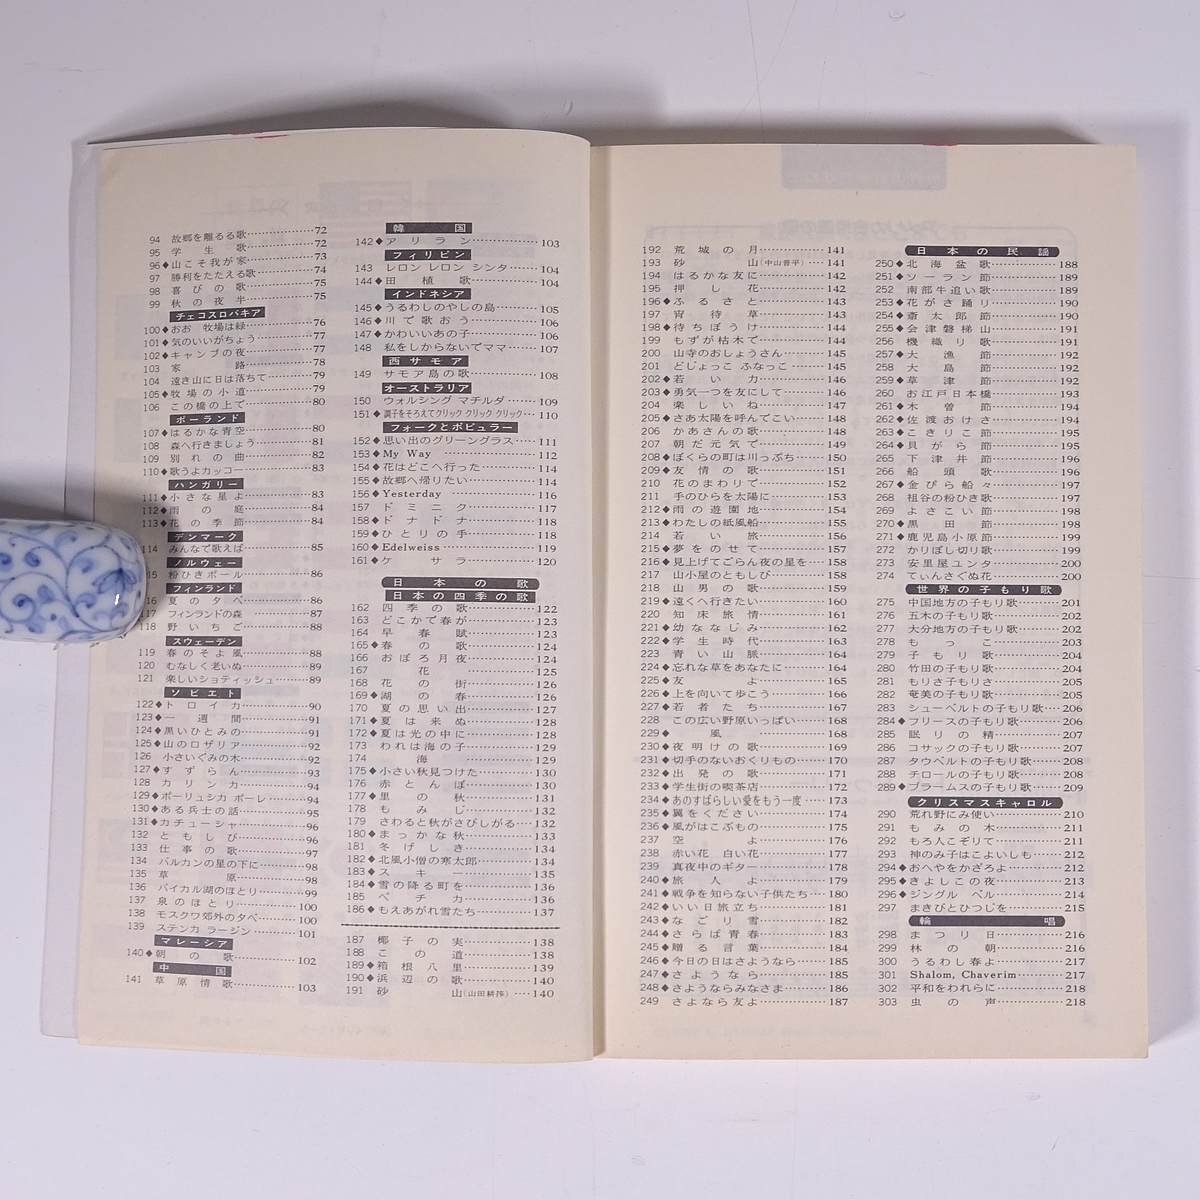 94 故郷を離るる歌……72
95 学生歌……72
96◆山こそ我が家……73
97 勝利をたたえる歌……74
98 喜びの歌……75
99 秋の夜半……75
チェコスロバキア
100◆おお 牧場は緑……76
101◆気のいいがちょう……77
102◆キャンプの夜……77
103 家路……78
104 遠き山に日は落ちて……79
105◆牧場の小道……79
106 この橋の上で……80
ポーランド
107◆はるかな青空……80
108 森へ行きましょう……81
109 別れの曲……82
110◆歌うよカッコー……83
ハンガリー
111◆小さな星よ……83
112◆雨の庭……84
113◆花の季節……84
デンマーク
114 みんなで歌えば……85
ノルウェー
15 粉ひきポール……86
フィンランド
16 夏の夕べ……86
117 フィンランドの森……87
118 野いちご……88
スウェーデン
119 春のそよ風……88
120 むなしく老いぬ……89
121 楽しいショティッシュ……89
ソビエト
122◆トロイカ……90
123◆一週間……91
124◆黒いひとみの……91
125◆山のロザリア……92
126 小さいぐみの木……92
127◆すずらん……93
128 カリンカ……94
129◆ポーリュシカ ポーレ……94
130◆ある兵士の話……95
131◆カチューシャ……96
132 ともしび……96
133 仕事の歌……97
134 バルカンの星の下に……98
135 草原……98
136 バイカル湖のほとり……99
137 泉のほとり……100
138 モスクワ郊外の夕べ……100
139 ステンカ ラージン……101
マレーシア
140◆朝の歌……102
中国
141 草原情歌……103
韓国
142◆アリラン……103
フィリピン
143 レロン レロン シンタ……104
144◆田植歌……104
インドネシア
145◆うるわしのやしの島……105
146◆川で歌おう……106
147◆かわいいあの子……106
148 私をしからないでママ……107
西サモア
149 サモア島の歌……108
オーストラリア
150 ウォルシング マチルダ……109
151◆調子をそろえてクリック クリック クリック……110
フォークとポピュラー
152◆思い出のグリーングラス……111
153◆My Way……112
154◆花はどこへ行った……114
155◆故郷へ帰りたい……114
156◆Yesterday……116
157 ドミニク……117
158◆ドナドナ……118
159◆ひとりの手……118
160◆Edelweiss……119
161◆ケサラ……120
日本の歌
日本の四季の歌
162 四季の歌……122
163 どこかで春が……123
164 早春賦……123
165◆春の歌……124
166 おぼろ月夜……124
167 花……125
168 花の街……126
169◆湖の春……126
170 夏の思い出……127
171◆夏は来ぬ……128
172◆夏は光の中に……128
173 われは海の子……129
174 海……129
175◆小さい秋見つけた……130
176 赤とんぼ……130
177◆里の秋……131
178 もみじ……132
179 さわると秋がさびしがる……132
180◆まっかな秋……133
181 冬げしき……134
182◆北風小僧の寒太郎……134
183◆スキー……135
184◆雪の降る町を……136
185 ペチカ……136
186◆もえあがれ雪たち……137
187 椰子の実……138
188 この道……138
189◆箱根八里……139
190◆浜辺の歌……140
191 砂山(山田耕筰)……140
192 荒城の月……141
193 砂山(中山晋平)……141
194 はるかな友に……142
195 押し花……142
196◆ふるさと……143
197 宵待草……143
198◆待ちぼうけ……144
199 もずが枯木で……144
200 山寺のおしょうさん……145
201 どじょっこ ふなっこ……145
202◆若い力……146
203◆勇気一つを友にして……146
204 楽しいね……147
205◆さあ太陽を呼んでこい……148
206 かあさんの歌……148
207 朝だ元気で……149
208◆ぼくらの町は川っぷち……150
209◆友情の歌……151
210 花のまわりで……152
211 手のひらを太陽に……153
212◆雨の遊園地……154
213◆わたしの紙風船……155
214 若い旅……156
215◆夢をのせて……157
216◆見上げてごらん夜の星を……158
217 山小屋のともしび……158
218 山男の歌……159
219◆遠くへ行きたい……160
220 知床旅情……161
221◆幼ななじみ……162
222◆学生時代……163
223 青い山脈……164
224◆忘れな草をあなたに……164
225◆友よ……165
226◆上を向いて歩こう……166
227◆若者たち……167
228 この広い野原いっぱい……168
229◆風……168
230◆夜明けの歌……169
231◆切手のないおくりもの……170
232◆出発の歌……171
233◆学生街の喫茶店……172
234◆あのすばらしい愛をもう一度……173
235◆翼をください……174
236◆風がはこぶもの……175
237 空よ……176
238 赤い花 白い花……177
239 真夜中のギター……178
240◆旅人よ……179
241◆戦争を知らない子供たち……180
242◆いい日旅立ち……181
243◆なごり雪……182
244◆さらば青春……183
245◆贈る言葉……184
246◆今日の日はさようなら……185
247◆さようなら……185
248◆さようならみなさま……186
249 さよなら友よ……187
日本の民謡
250◆北海盆歌……188
251◆ソーラン節……189
252 南部牛追い歌……189
253◆花がさ踊り……190
254◆斎太郎節……190
255◆会津磐梯山……191
256 機織り歌……191
257◆大漁節……192
258 大島節……192
259◆草津節……192
260 お江戸日本橋……193
261◆木曽節……194
262◆佐渡おけさ……194
263◆こきりこ節……195
264◆貝がら節……195
265 下津井節……196
266 船頭歌……196
267◆金ぴら船々……197
268 祖谷の粉ひき歌……197
269 よさこい節……198
270◆黒田節……198
271◆鹿児島小原節……199
272 かりぼし切り歌……199
273 安里屋ユンタ……200
274 てぃんさぐぬ花……200
世界の子もり歌
275 中国地方の子もり歌……201
276 五木の子もり歌……202
277 大分地方の子もり歌……202
278 もっこ……203
279 子もり歌……204
280 竹田の子もり歌……204
281 もりさ子もりさ……205
282 奄美の子もり歌……205
283 シューベルトの子もり歌……206
284◆フリースの子もり歌……206
285 眠りの精……207
286 コサックの子もり歌……207
287 タウベルトの子もり歌……208
288 チロールの子もり歌……208
289◆ブラームスの子もり歌……209
クリスマスキャロル
290 荒れ野にみ使い……210
291 もみの木……211
292 もろ人こぞりて……211
293 神のみ子はこよいしも……212
294◆おへやをかざろよ……212
295◆きよしこの夜……213
296◆ジングル ベル……214
297 まきびとひつじを……215
輪唱
298 まつり日……216
299 林の朝……216
300 うるわし春よ……217
301 Shalom, Chaverim……217
302 平和をわれらに……218
303 虫の声……218